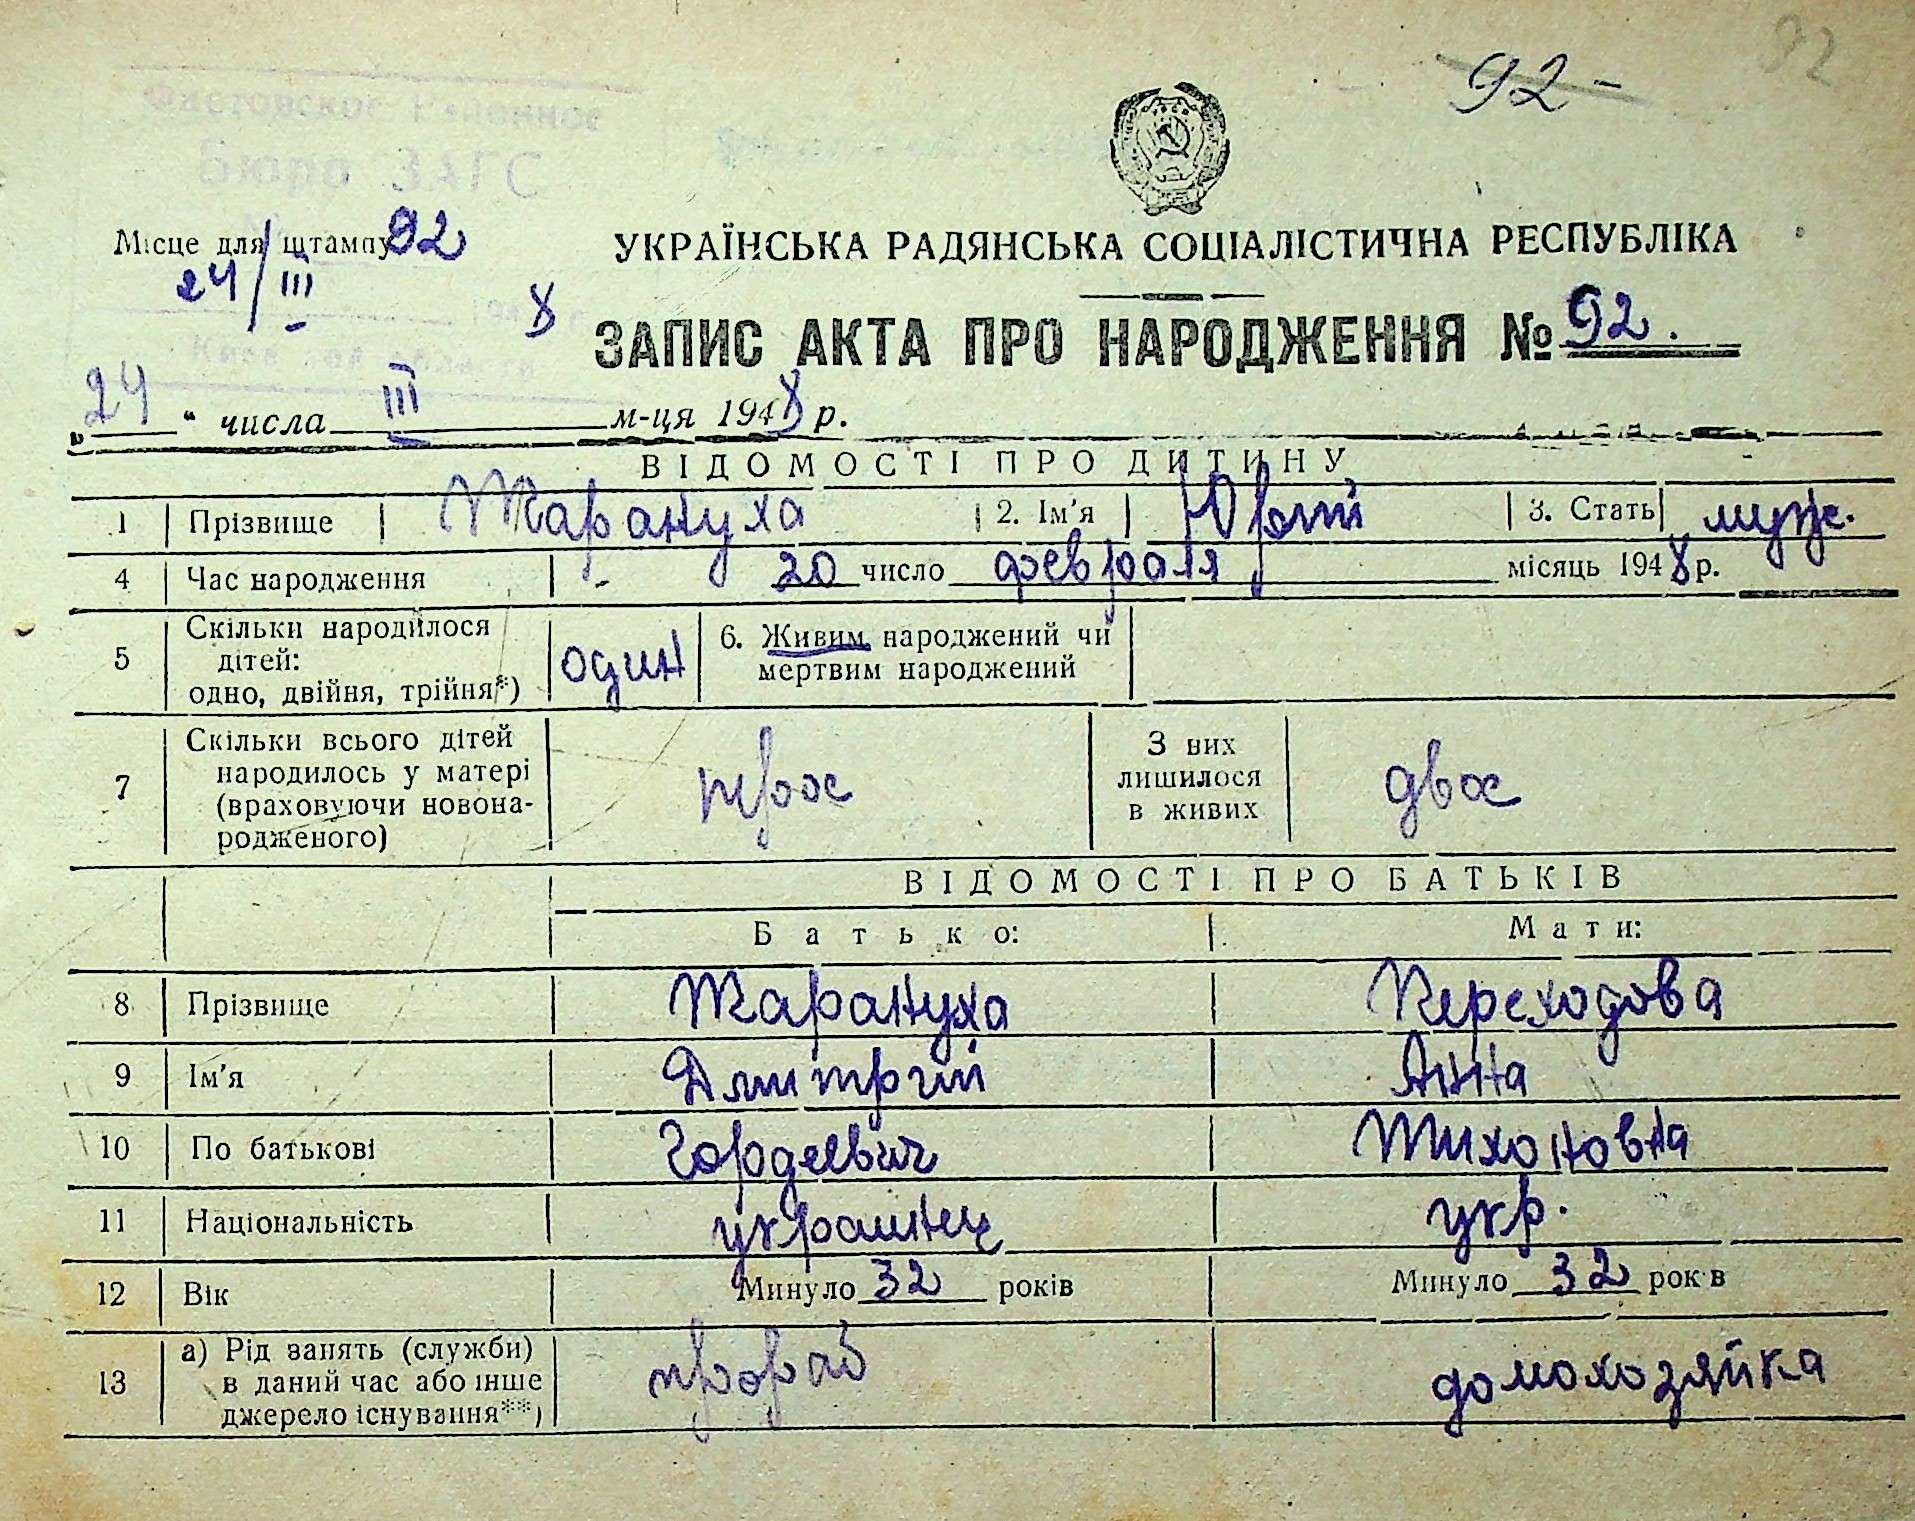 92 -
92
Фастовское Районное
Бюро ЗАГС
Місце для штампу 92
24/III
8
УКРАЇНСЬКА РАДЯНСЬКА СОЦІАЛІСТИЧНА РЕСПУБЛІКА
ЗАПИС АКТА ПРО НАРОДЖЕННЯ № 92.
„24“ числа III м-ця 1948 р.
ВІДОМОСТІ ПРО ДИТИНУ
1 Прізвище Тарануха 2. Ім'я Юрий 3. Стать муж.
4 Час народження - 20 число февраля місяць 1948 р.
5 Скільки народилося дітей: одно, двійня, трійня*) один 6. Живим народжений чи мертвим народжений
7 Скільки всього дітей народилось у матері (враховуючи новонародженого) трое З них лишилося в живих двое
ВІДОМОСТІ ПРО БАТЬКІВ
Батько: Мати:
8 Прізвище Тарануха Переходова
9 Ім'я Дмитрий Анна
10 По батькові Гордеевич Тихоновна
11 Національність украинец укр.
12 Вік Минуло 32 років Минуло 32 років
13 а) Рід занять (служби) в даний час або інше джерело існування**) прораб домохозяйка